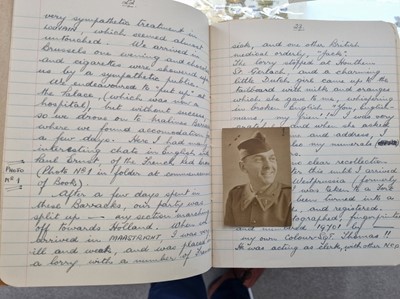 22
very sympathetic treatment in
which seemed almost
untouched. We arrived in
Brussels one evening and chocs
and cigarettes were showered upon
us by a sympathetic public.
We endeavoured to "put up" at
the Palace, (which was now a
hospital), but without success,
so we drove on to
where we found accomodation for
a few days. Here I had many
interesting chats in English with
Paul Ernest of the French Red Cross
(Photo Nº 1 in folder at commencement
of Book).
PHOTO
Nº 1
After a few days spent in
these Barracks, our party was
split up — my section marching
off towards Holland. When we
arrived in MAASTRICHT, I was very
ill and weak, and was placed in
a lorry with a number of French
23
sick, and one other British
medical orderly, "Jack".
The lorry stopped at Houthem
St. Gerlach, and a charming
little Dutch girl came up to the
tailboard with milk and oranges
which she gave to me, whispering
in broken English "You, English
mans, my friend"! I was very
and when she asked
and address, I
my numerals
clear recollection
after this until I
Westprussia, (formerly
was taken to a Fort
been turned into a
and registered,
photographed, fingerprinted
and numbered 1490! by
my own Colour-Sgt. Thomas!!
He was acting as clerk, with other N.C.O's